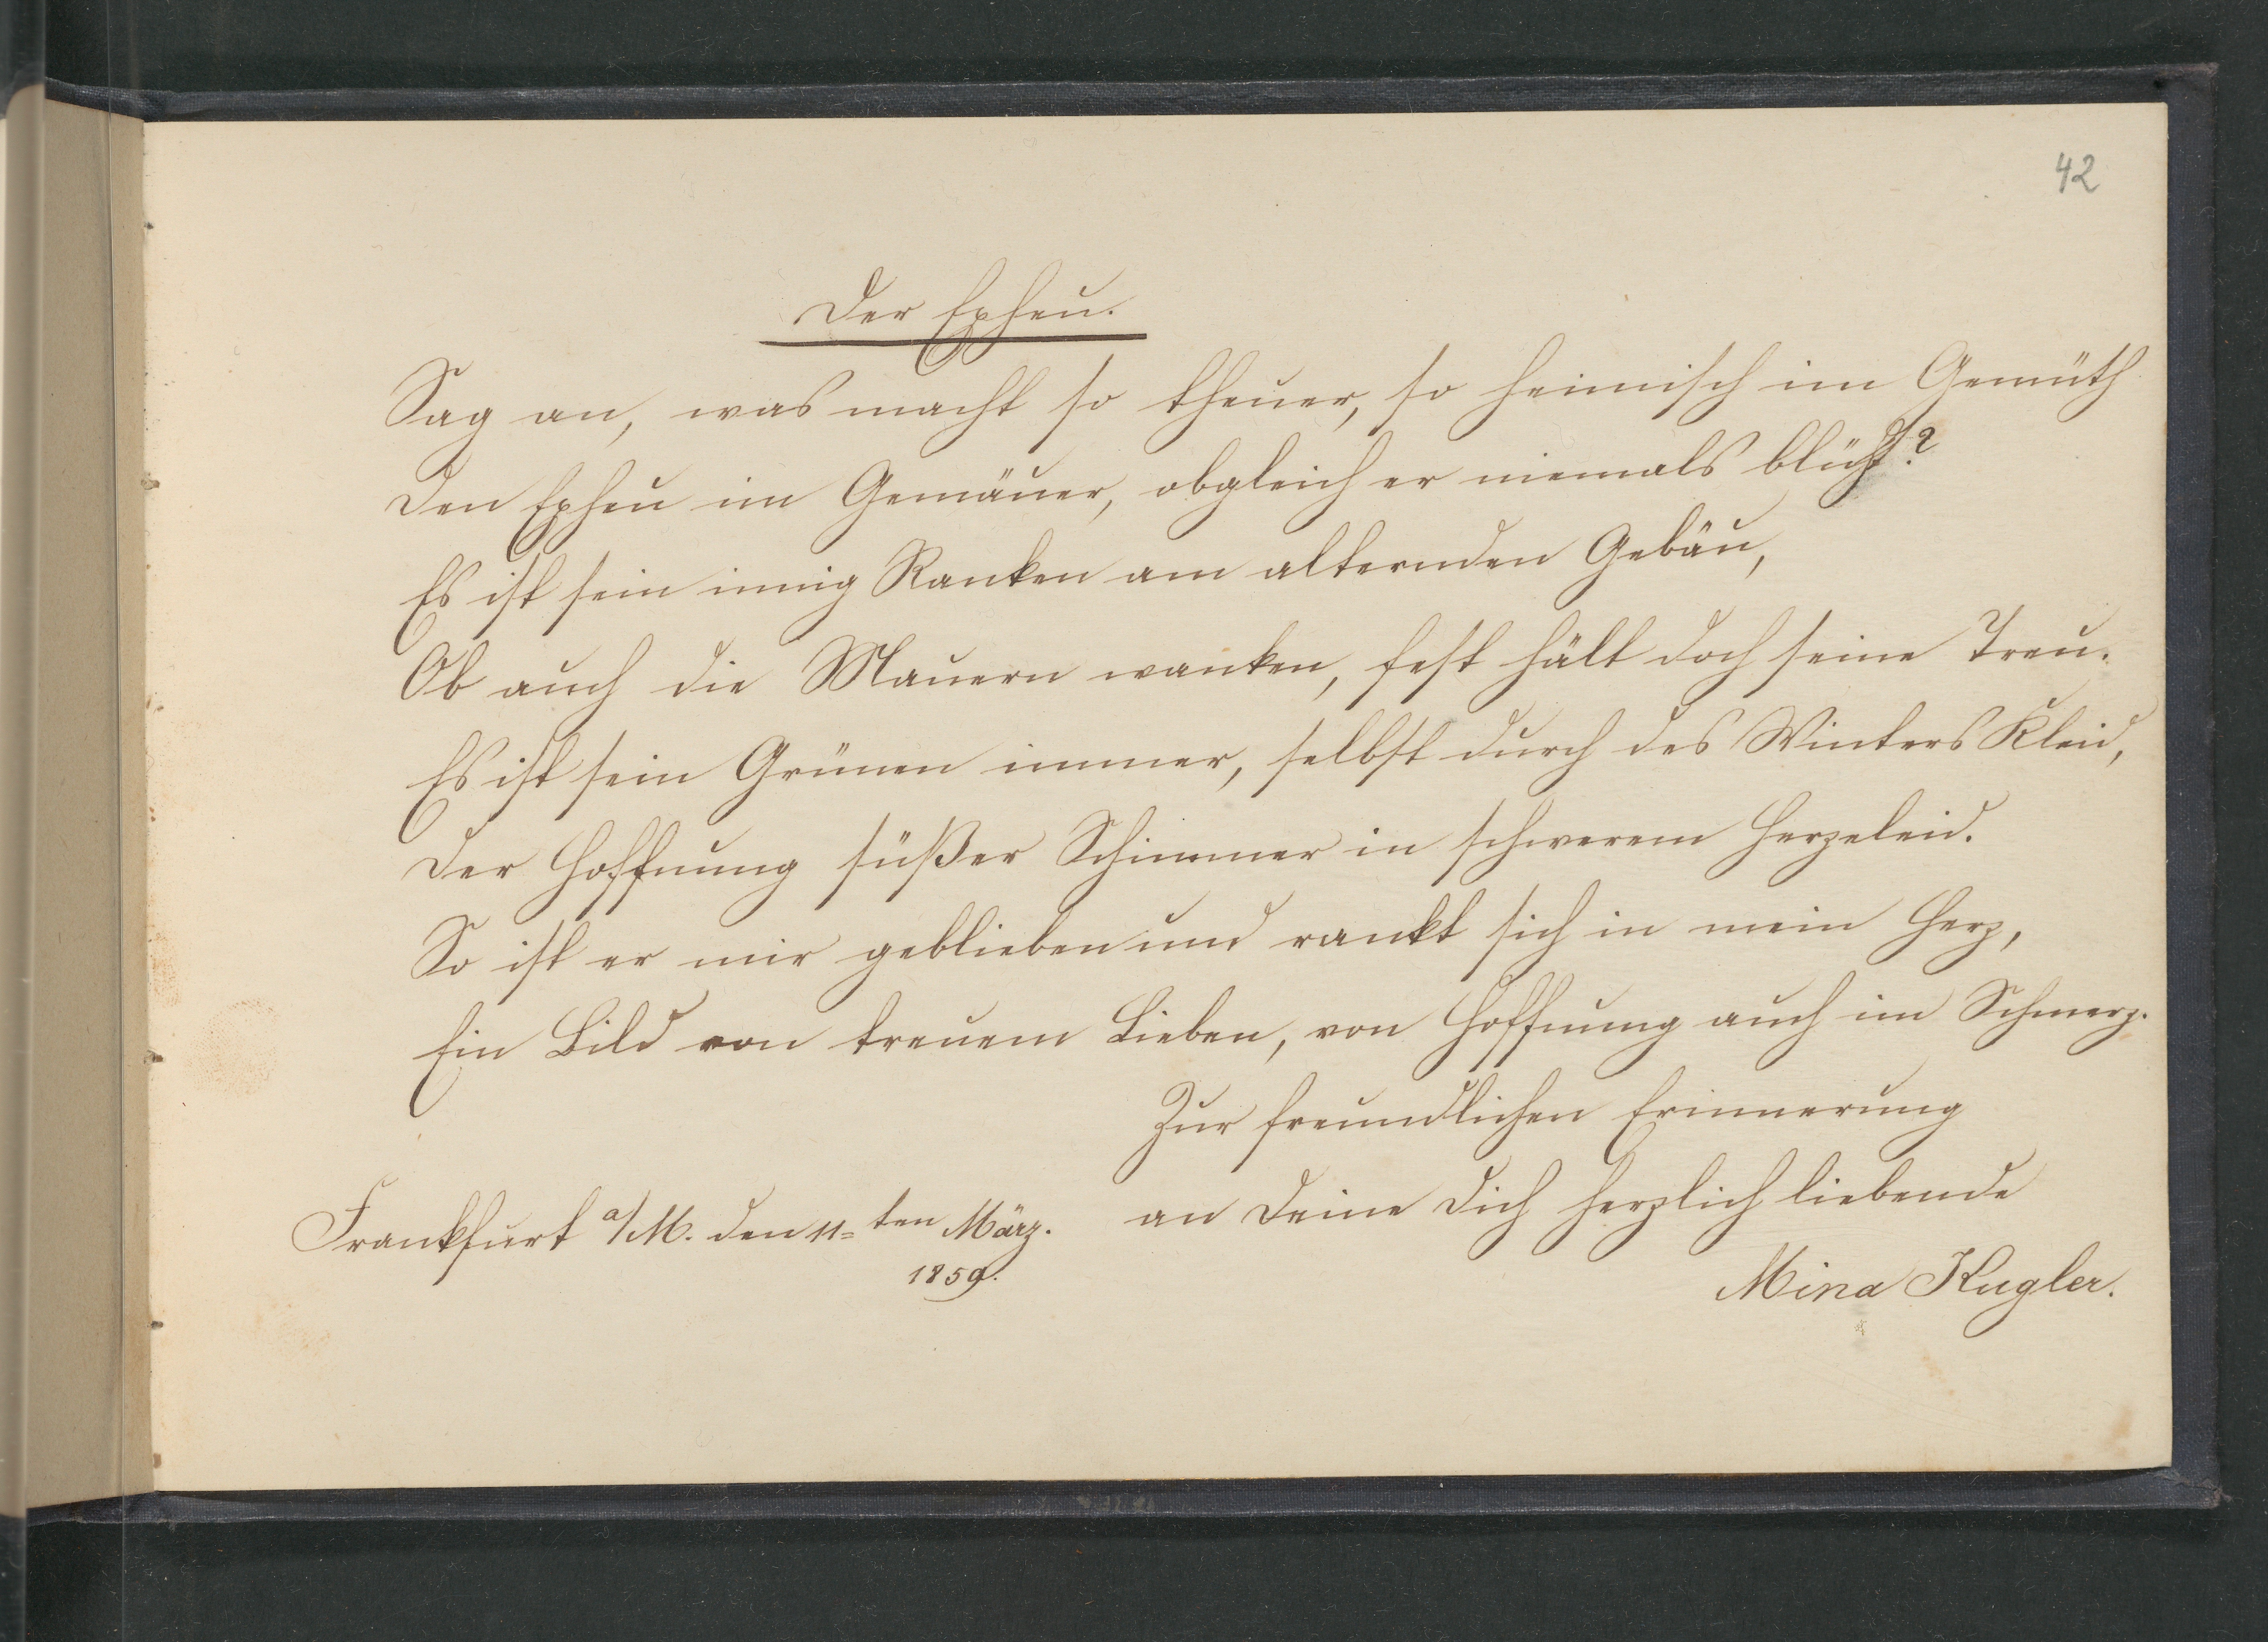 42
Der Epheu.
Sag an, was macht so theuer, so heimisch im Gemüth
Den Epheu im Gemäuer, obgleich er niemals blüht?
Es ist sein innig Ranken am alternden Gebäu,
Ob auch die Mauern wanken, fest hält doch seine Treu.
Es ist sein Grünen immer, selbst durch des Winters Kleid,
Der Hoffnung süßer Schimmer in schwerem Herzeleid.
So ist er mir geblieben und rankt sich in mein Herz,
Ein Bild von treuem Lieben, von Hoffnung auch im Schmerz.
Zur freundlichen Erinnerung
an Deine Dich herzlich liebende
Mina Kugler.
Frankfurt a/M. den 11=ten März.
1859.